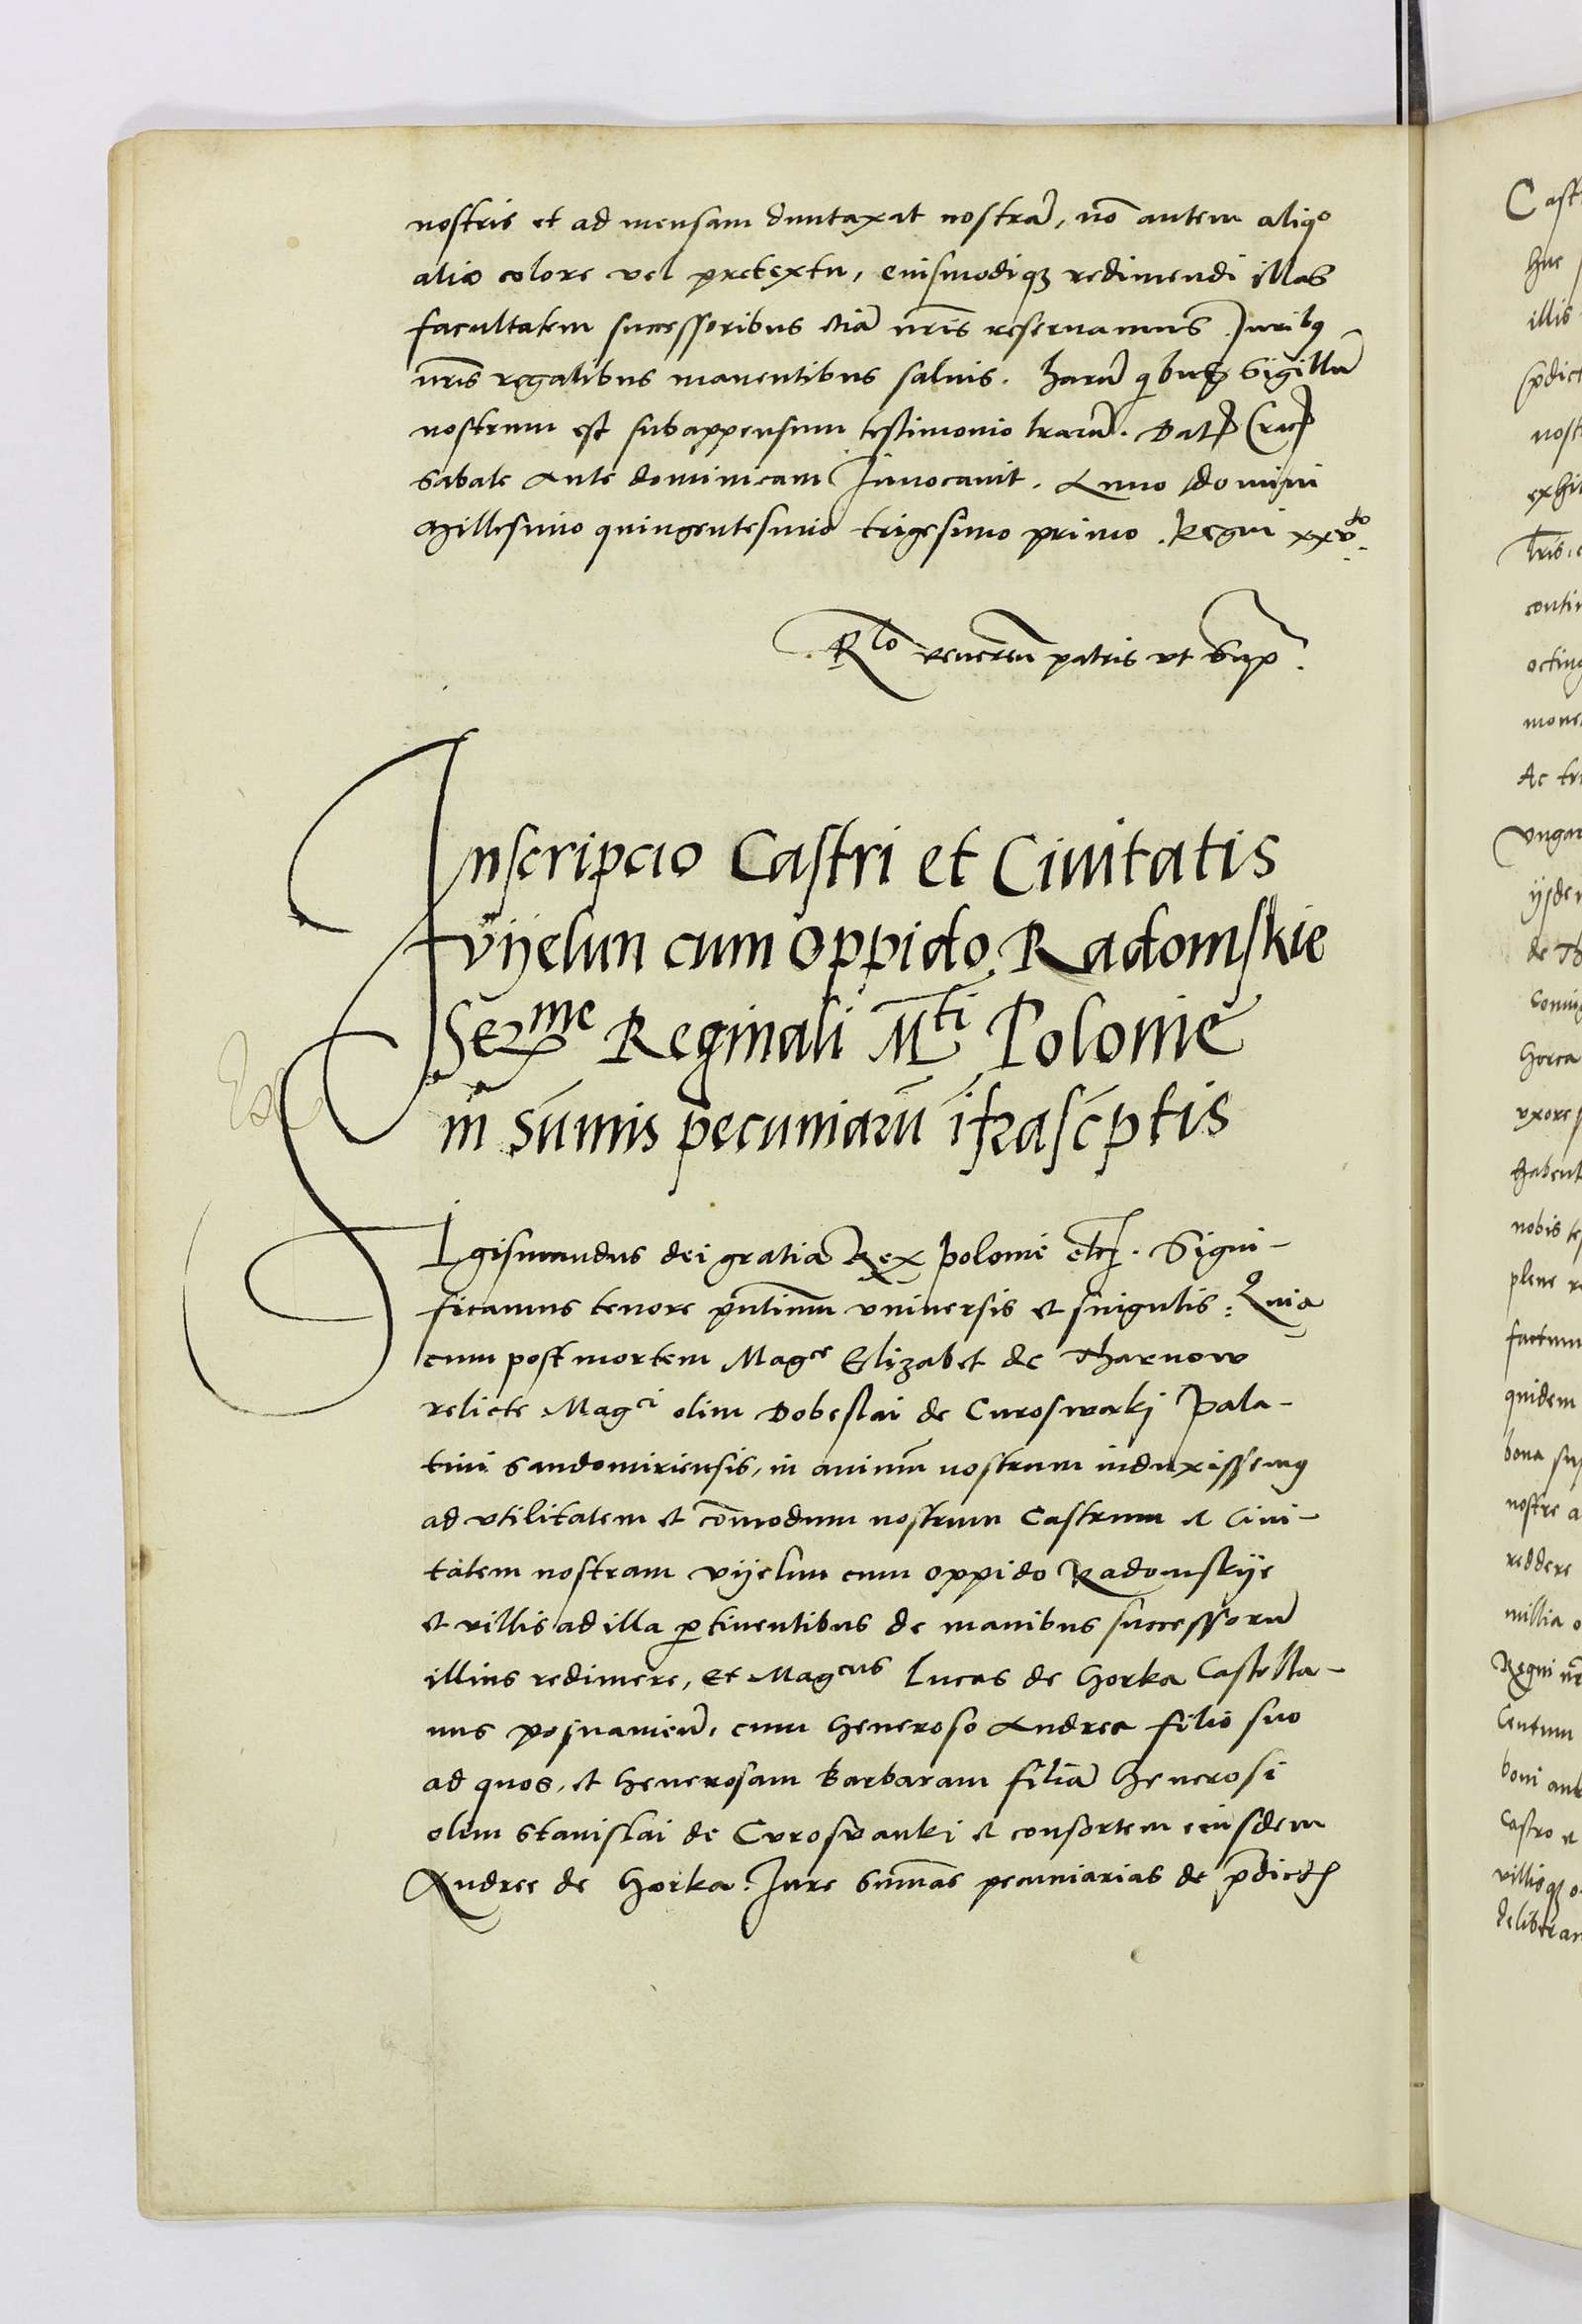 nostris et ad mensam duntaxat nostrã, nõ autem aliqo
alio colore vel pretextu, eiusmodiqꝫ redimendi illas
facultatem successoribus etiã nr̃is reseruamus. Juribꝰ
nr̃is regalibus manentibus saluis. harũ quibus Sigillũ
nostrum est subappensum testimonio lrarũ. Dat Crac
Sabato Ante dominicam Inuocauit. Anno domini
Millesimo quingentesimo trigesimo primo. Regni xxvto.
Rlo reueren patris vt Sup.
Inscripcio Castri et Ciuitatis
vijelun cum oppido Radomskie
Serme Reginali Mti Polonie
in sũmis pecuniarũ ifrascptis
SIgismundus dei gratia Rex polonie etc. Signi-
ficamus tenore pñtium vniuersis et singulis: Quia
cum post mortem Magce Elizabet de Tharnow
relicte Magci olim Dobeslai de Curoswaki Pala-
tini Sandomiriensis, in animũ nostrum induxissemꝰ
ad vtilitatem et cõmodum nostrum Castrum et Ciui-
tatem nostram vijelun cum oppido Radomskije
et villis ad illa ꝑtinentibus de manibus successorũ
illius redimere, et Magcus Lucas de Gorka Castella-
nus posnanieñ, cum Generoso Andrea filio suo
ad quos, et Generosam Barbaram filiã Generosi
olim Stanislai de Curoswanki et consortem eiusdem
Andree de Gorka. Jure Sum̃as pecuniarias de p̃dict
Cast
huc
illis
p̃dict
nost
exhi
lr̃is.
contin
octing
mone
Ac tr
vngar
ijsde
de Th
Coniu
Gorca
vxore
habent
nobis
plene
factum
quidem
bona
nostre
reddere
millia
Regni
Centum
boni
Castro et
villisqꝫ
deliberan